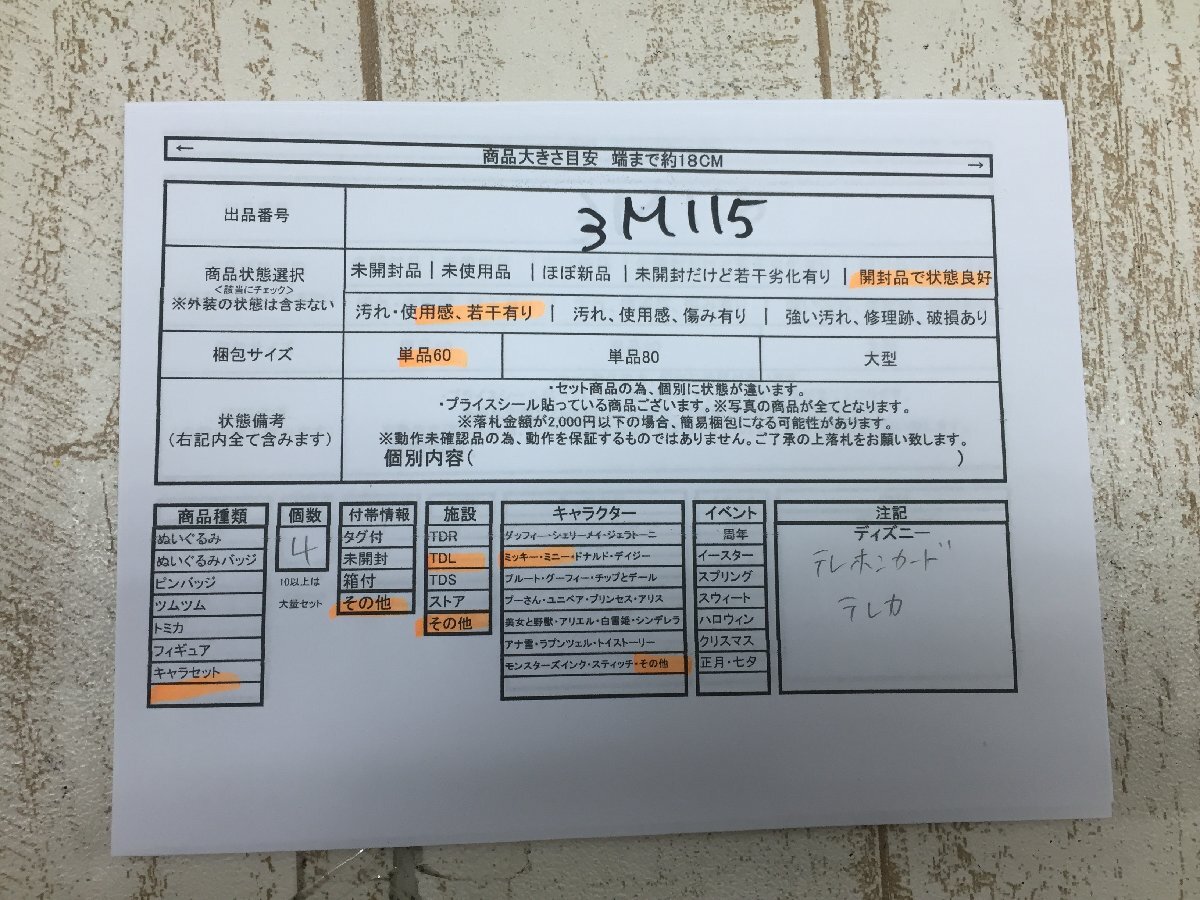 ← 商品大きさ目安 端まで約18CM →
出品番号 3M115
商品状態選択
<該当にチェック>
※外装の状態は含まない
未開封品 | 未使用品 | ほぼ新品 | 未開封だけど若干劣化有り | 開封品で状態良好
汚れ・使用感、若干有り | 汚れ、使用感、傷み有り | 強い汚れ、修理跡、破損あり
梱包サイズ 単品60 単品80 大型
状態備考
(右記内全て含みます)
・セット商品の為、個別に状態が違います。
・プライスシール貼っている商品ございます。※写真の商品が全てとなります。
※落札金額が2,000円以下の場合、簡易梱包になる可能性があります。
※動作未確認品の為、動作を保証するものではありません。ご了承の上落札をお願い致します。
個別内容( )
商品種類
ぬいぐるみ
ぬいぐるみバッジ
ピンバッジ
ツムツム
トミカ
フィギュア
キャラセット
個数
4
10以上は
大量セット
付帯情報
タグ付
未開封
箱付
その他
施設
TDR
TDL
TDS
ストア
その他
キャラクター
ダッフィー・シェリーメイ・ジェラトーニ
ミッキー・ミニー・ドナルド・デイジー
プルート・グーフィー・チップとデール
プーさん・ユニベア・プリンセス・アリス
美女と野獣・アリエル・白雪姫・シンデレラ
アナ雪・ラプンツェル・トイストーリー
モンスターズインク・スティッチ・その他
イベント
周年
イースター
スプリング
スウィート
ハロウィン
クリスマス
正月・七夕
注記
ディズニー
テレホンカード
テレカ